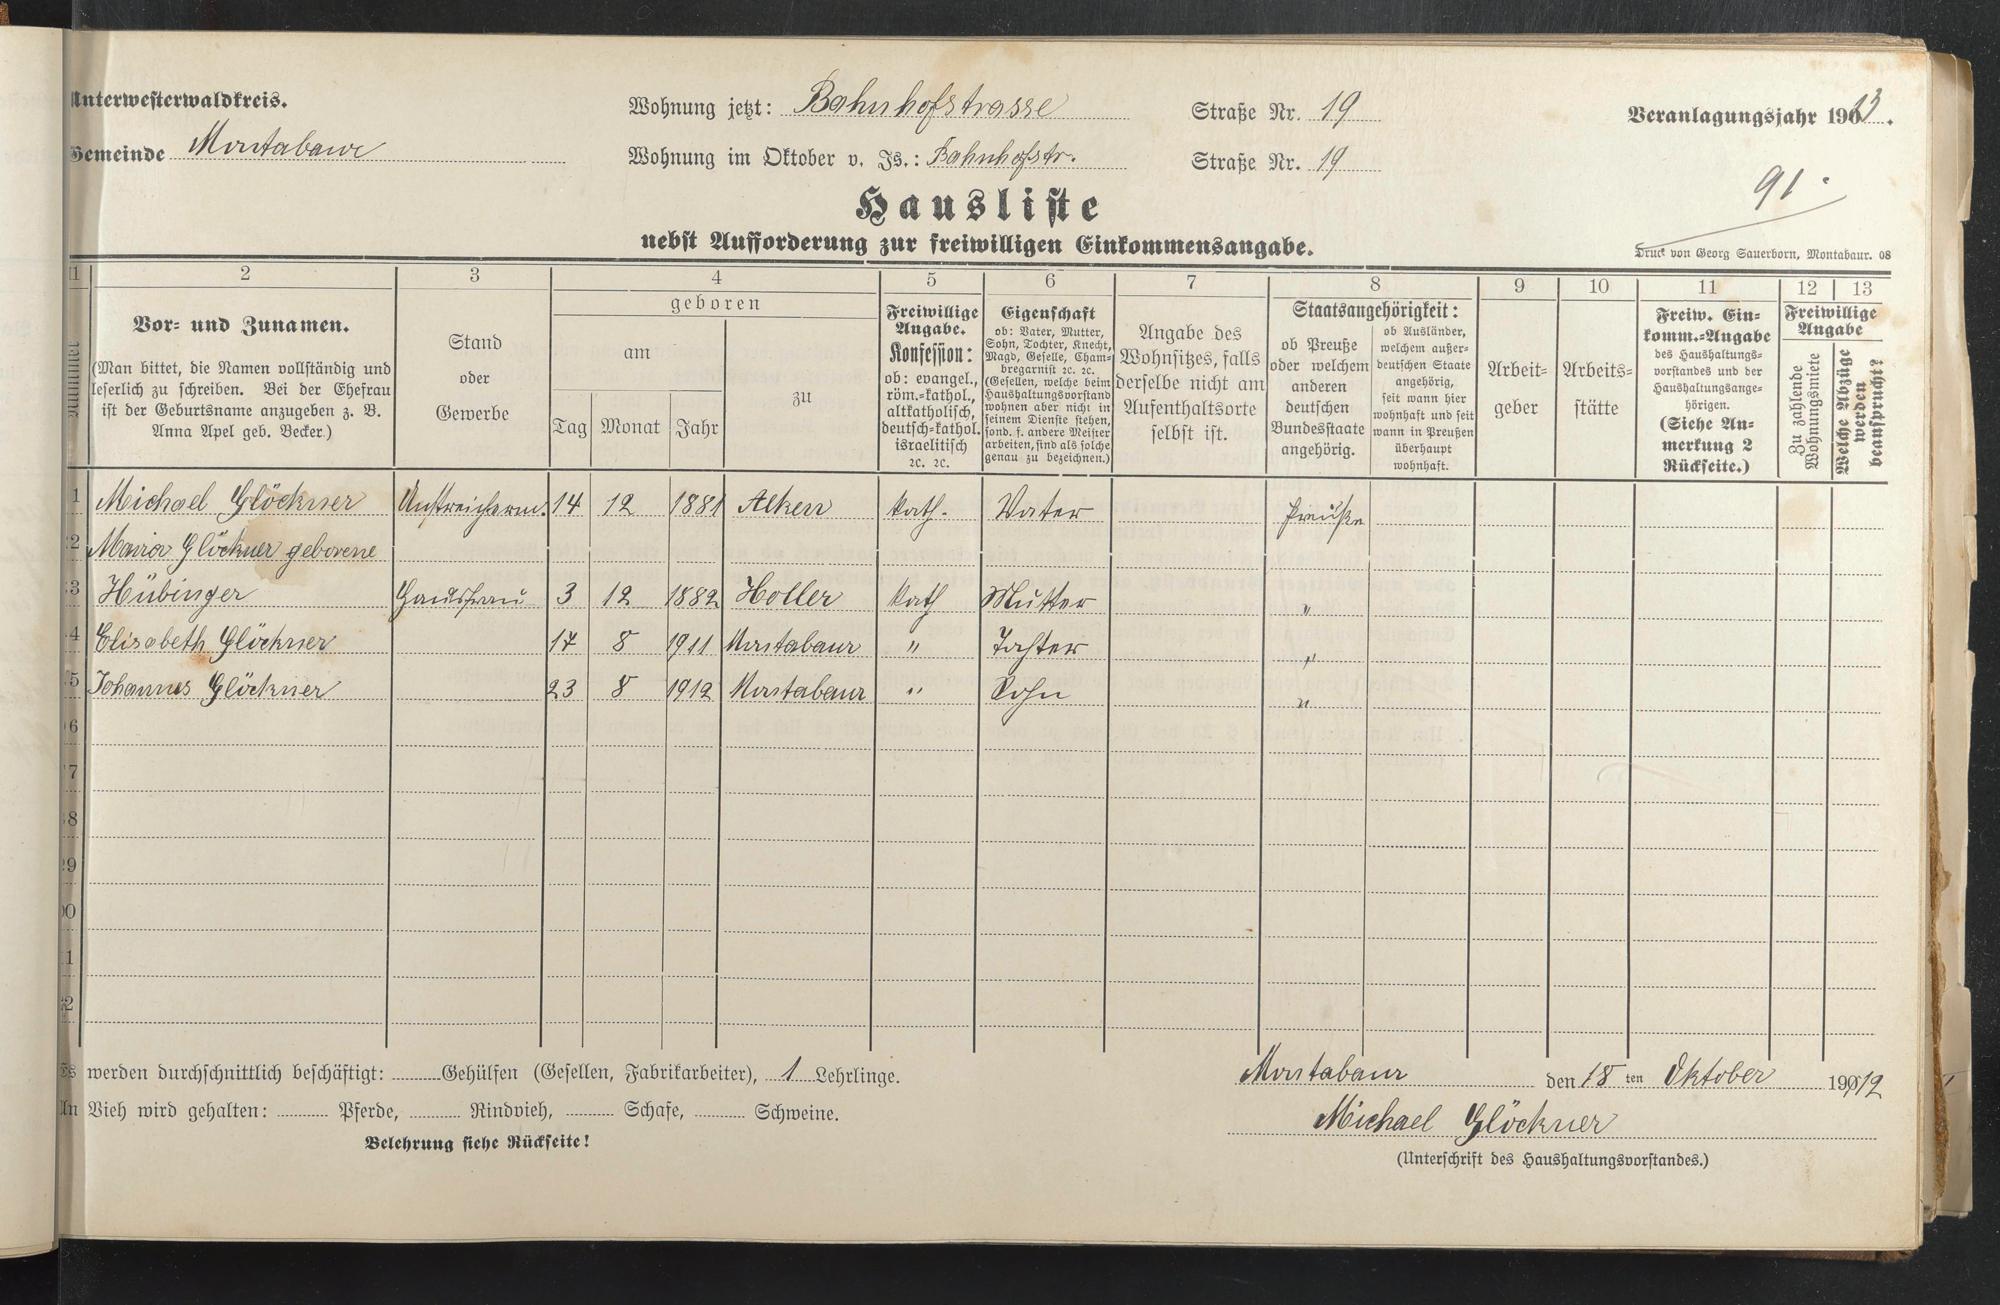 Unterwesterwaldkreis.
Gemeinde Montabaur
Wohnung jetzt: Bahnhofstrasse Straße Nr. 19
Wohnung im Oktober v. Js.: Bahnhofstr. Straße Nr. 19
Veranlagungsjahr 1913.
91.
Hausliste
nebst Aufforderung zur freiwilligen Einkommensangabe.
Druck von Georg Sauerborn, Montabaur. 08
1 2 3 4 5 6 7 8 9 10 11 12 13
Nummer
Vor- und Zunamen.
(Man bittet, die Namen vollständig und
leserlich zu schreiben. Bei der Ehefrau
ist der Geburtsname anzugeben z. B.
Anna Apel geb. Becker.)
Stand
oder
Gewerbe
geboren
am
Tag Monat Jahr
zu
Freiwillige
Angabe.
Konfession:
ob: evangel.,
röm.-kathol.,
altkatholisch,
deutsch-kathol.
israelitisch
2c. 2c.
Eigenschaft
ob: Vater, Mutter,
Sohn, Tochter, Knecht,
Magd, Geselle, Cham-
bregarnist 2c. 2c.
(Gesellen, welche beim
Haushaltungsvorstand
wohnen aber nicht in
seinem Dienste stehen,
sond. f. andere Meister
arbeiten, sind als solche
genau zu bezeichnen.)
Angabe des
Wohnsitzes, falls
derselbe nicht am
Aufenthaltsorte
selbst ist.
Staatsangehörigkeit:
ob Preuße
oder welchem
anderen
deutschen
Bundesstaate
angehörig.
ob Ausländer,
welchem außer-
deutschen Staate
angehörig,
seit wann hier
wohnhaft und seit
wann in Preußen
überhaupt
wohnhaft.
Arbeit-
geber
Arbeits-
stätte
Freiw. Ein-
komm.-Angabe
des Haushaltungs-
vorstandes und der
Haushaltungsange-
hörigen.
(Siehe An-
merkung 2
Rückseite.)
Freiwillige
Angabe
Zu zahlende
Wohnungsmiete
Welche Abzüge
werden
beansprucht?
1 Michael Glöckner Anstreicherm. 14 12 1881 Alken kath. Vater Preuße
2 Maria Glöckner geborene
3 Hübinger Hausfrau 3 12 1882 Holler kath Mutter "
4 Elisabeth Glöckner 17 8 1911 Montabaur " Tochter "
5 Johannes Glöckner 23 8 1912 Montabaur " Sohn "
6
7
8
9
0
1
2
Es werden durchschnittlich beschäftigt: Gehülfen (Gesellen, Fabrikarbeiter), 1 Lehrlinge.
An Vieh wird gehalten: Pferde, Rindvieh, Schafe, Schweine.
Belehrung siehe Rückseite!
Montabaur den 18 ten Oktober 1912
Michael Glöckner
(Unterschrift des Haushaltungsvorstandes.)